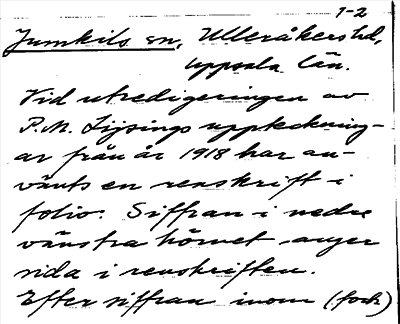 1-2
Jumkils sn, Ulleråkers hd,
Uppsala län.
Vid utredigeringen av
P.M. Lijsings uppteckning-
ar från år 1918 har an-
vänts en renskrift i
folio. Siffran i nedre
vänstra hörnet anger
sida i renskriften.
Efter siffran inom (fork)